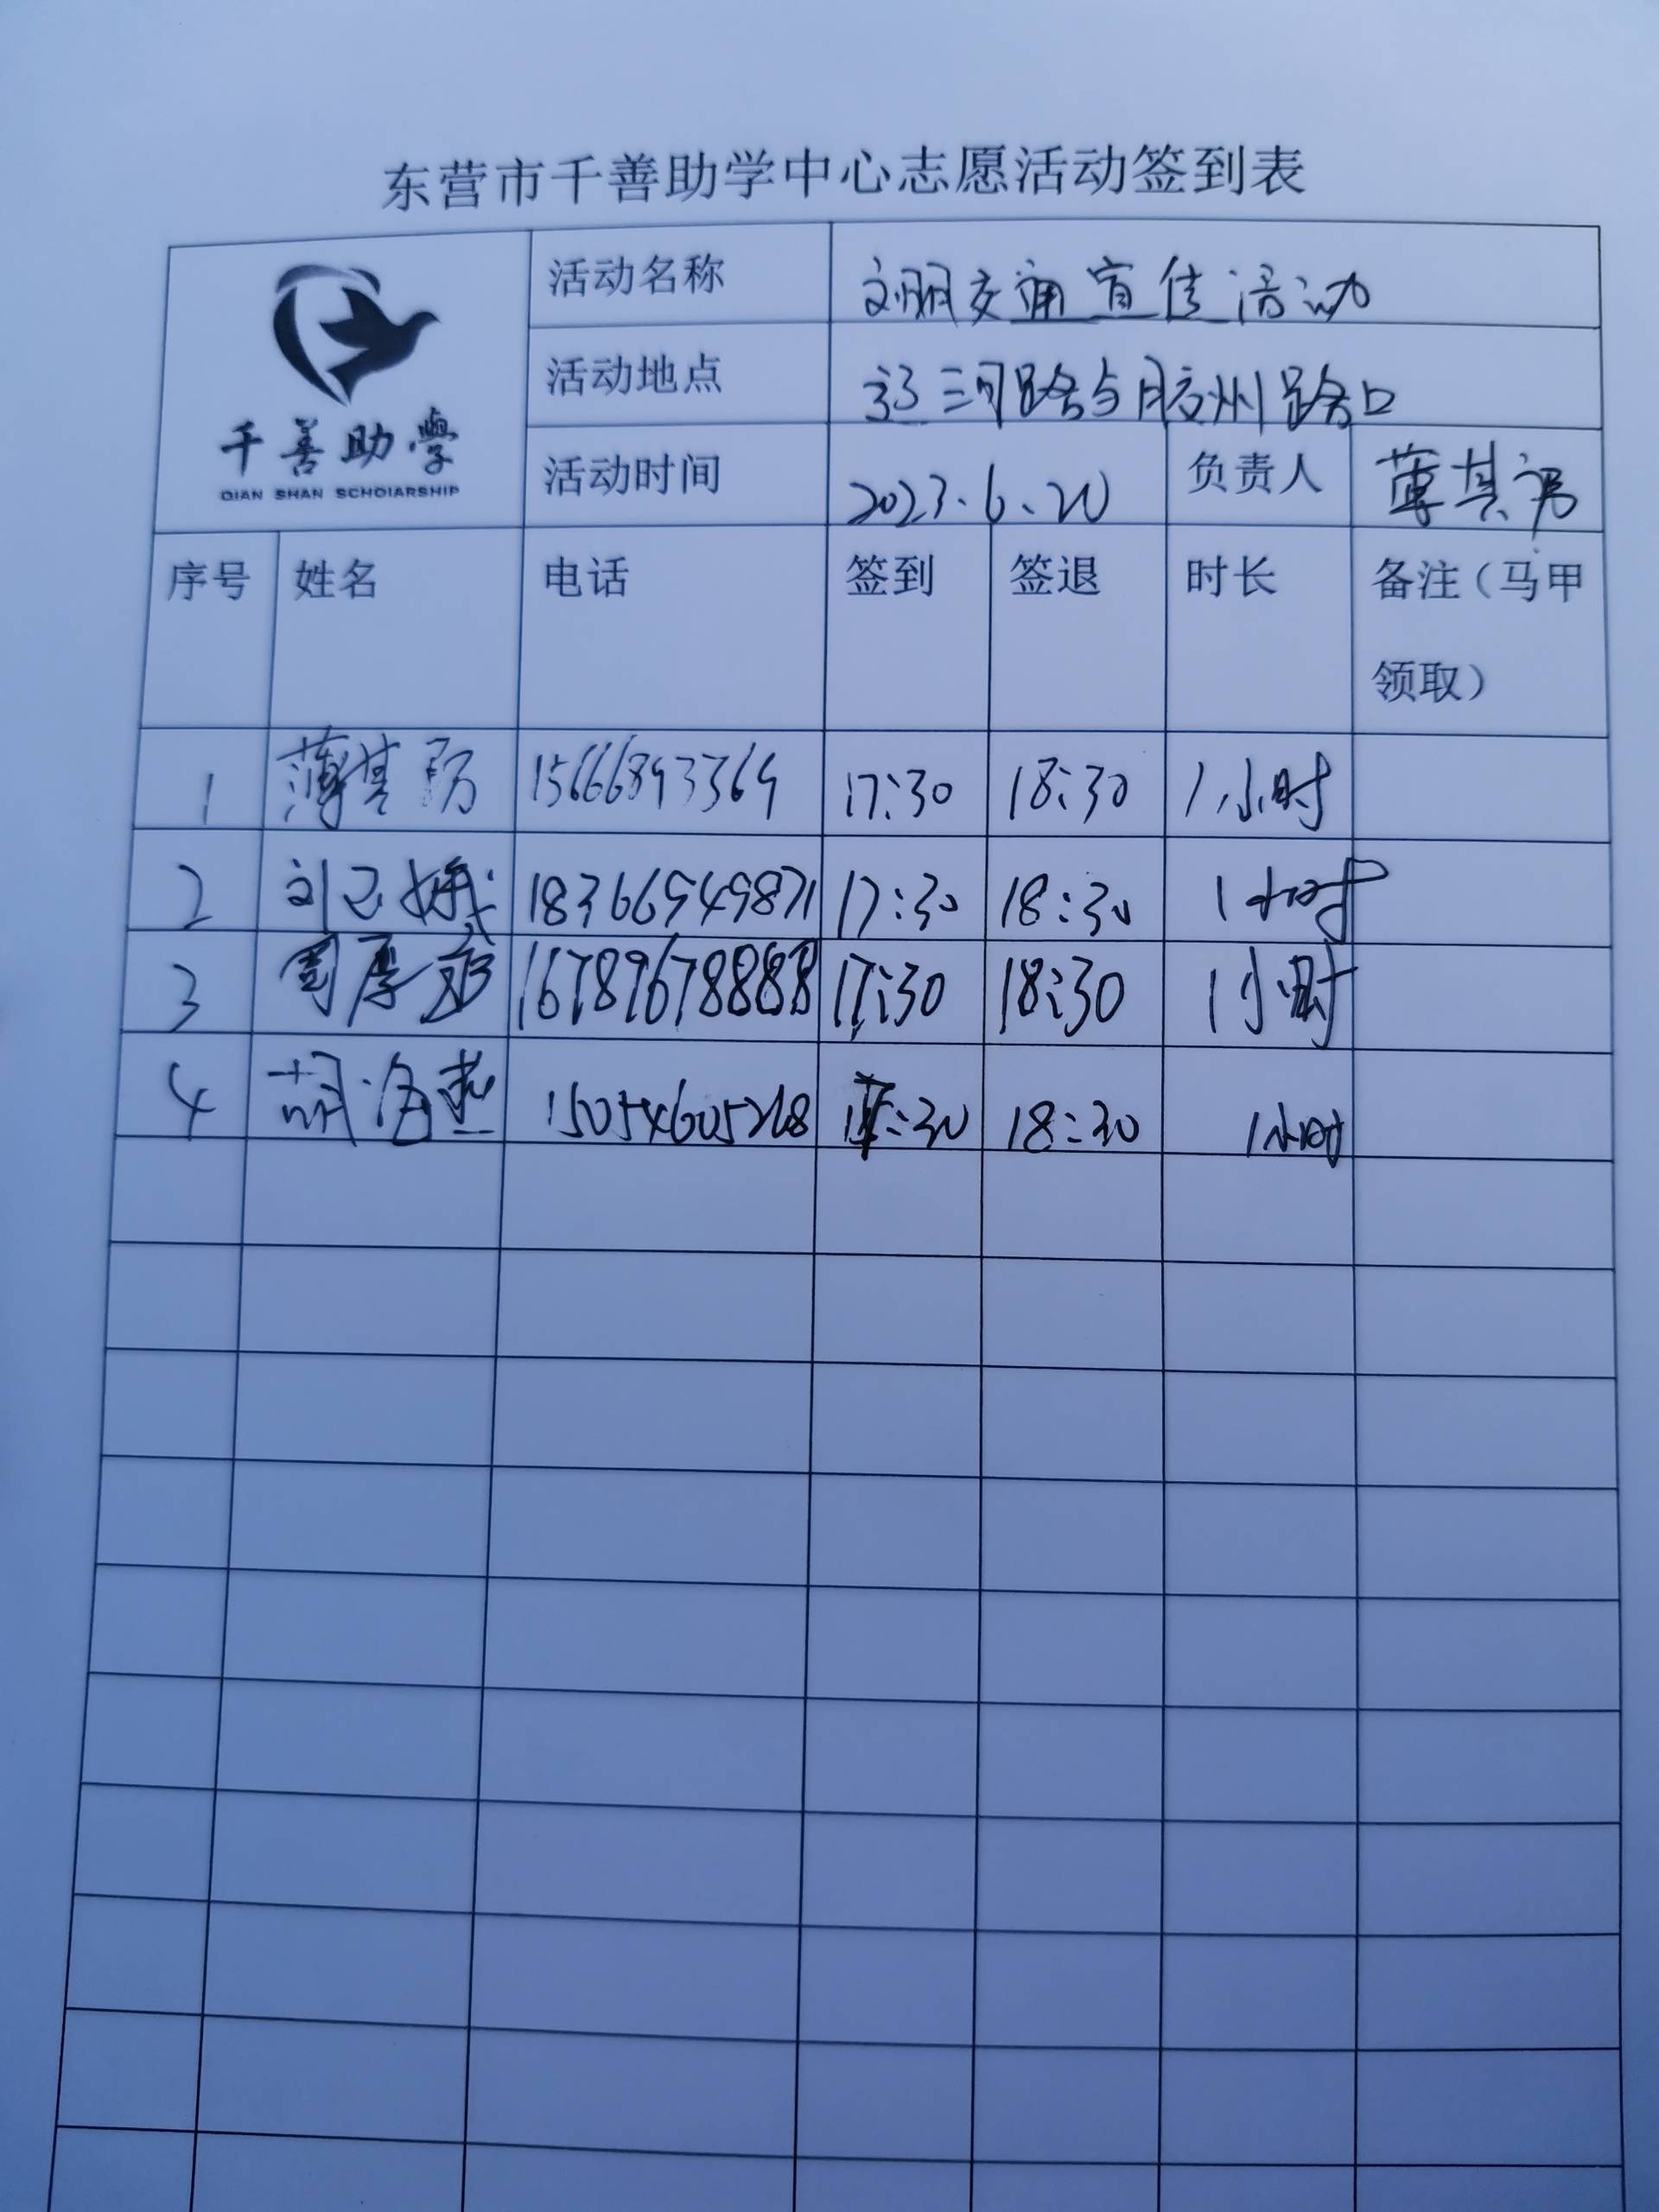 东营市千善助学中心志愿活动签到表
千善助學
QIAN SHAN SCHOIARSHIP
活动名称 文明交通宣传活动
活动地点 三河路与胶州路路口
活动时间 2023.6.20 负责人 薄其
序号 姓名 电话 签到 签退 时长 备注（马甲
领取）
1 薄其 15666893369 17:30 18:30 1小时
2 刘 18366949871 17:30 18:30 1小时
3 周厚 16789678888 17:30 18:30 1小时
4 胡海燕 15054605268 :30 18:30 1小时